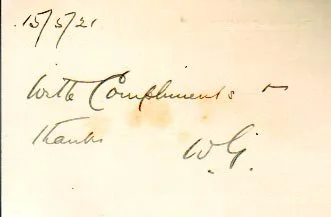 15/5/21
With Compliments &
thanks
W.G.